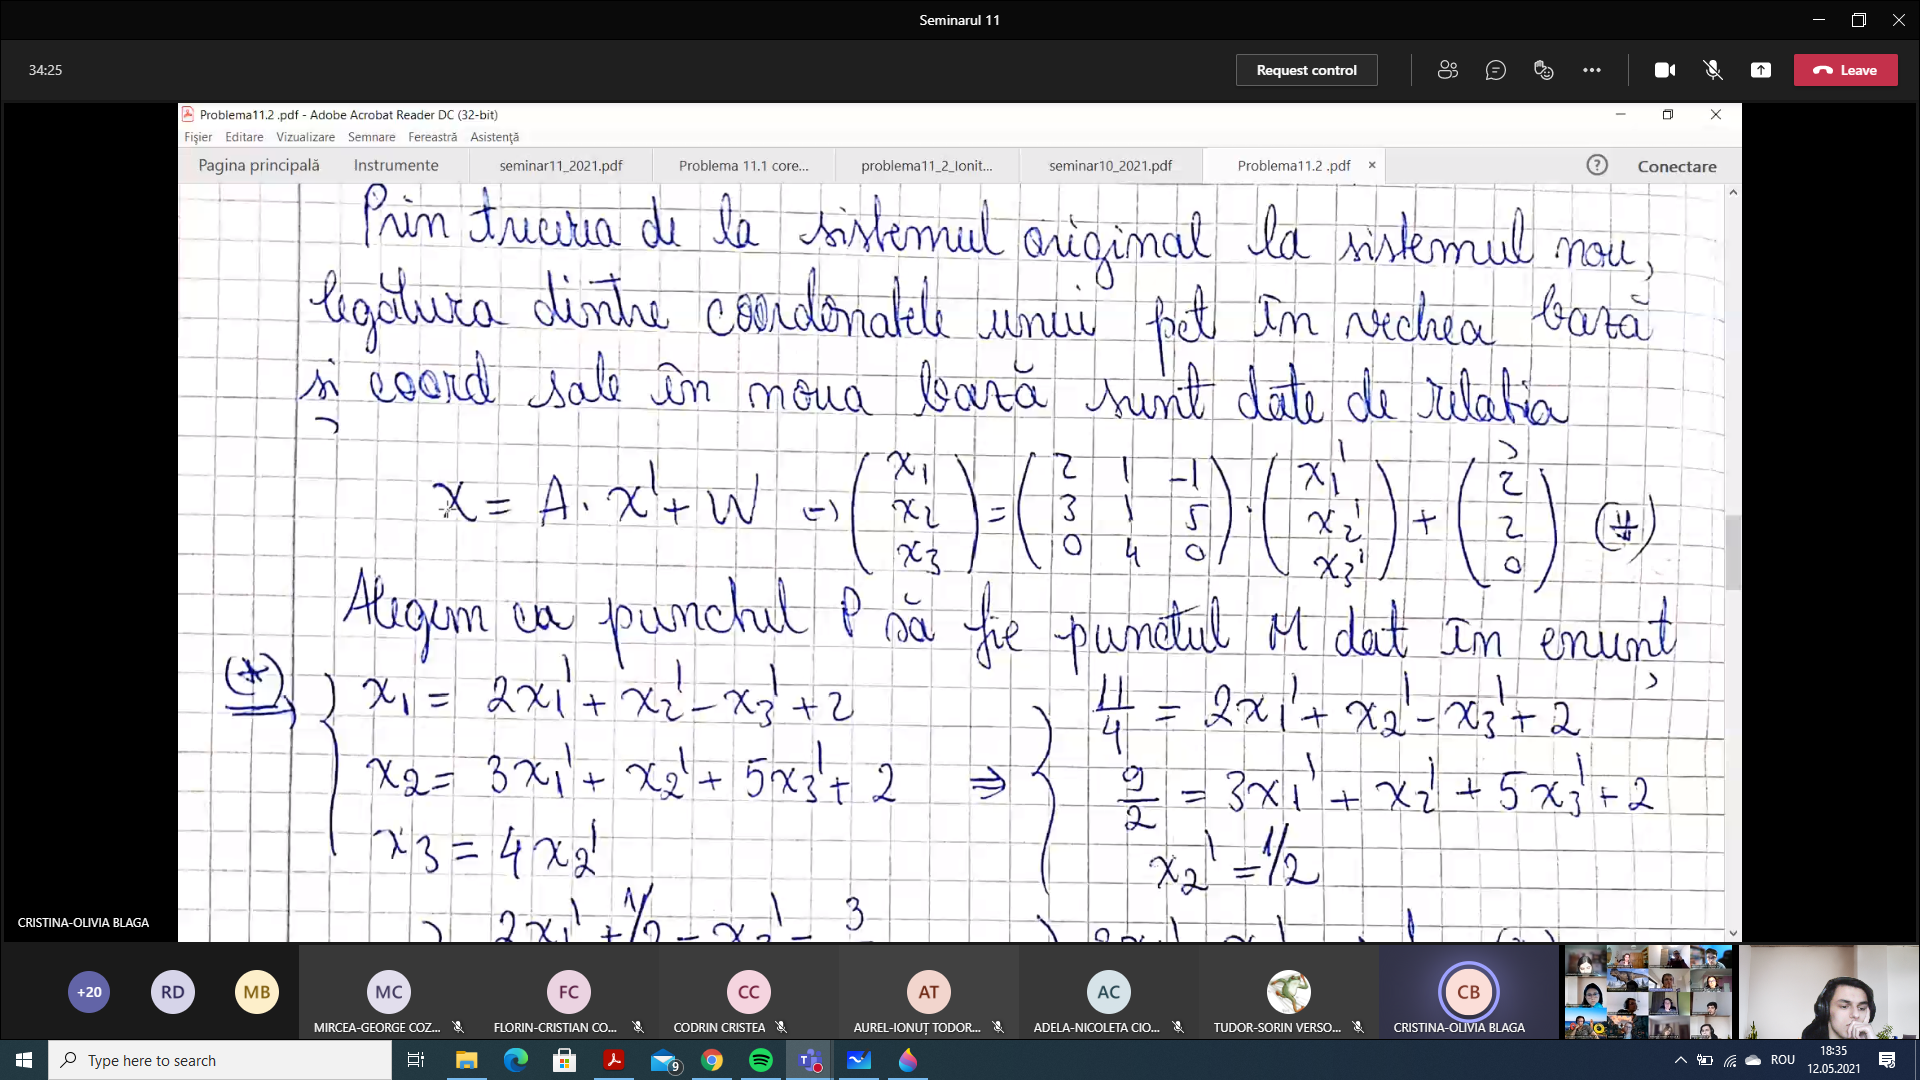 Seminarul 11
34:25
Request control
Leave
Problema11.2 .pdf - Adobe Acrobat Reader DC (32-bit)
Fișier Editare Vizualizare Semnare Fereastră Asistență
Pagina principală Instrumente seminar11_2021.pdf Problema 11.1 core... problema11_2_Ionit... seminar10_2021.pdf Problema11.2 .pdf × Conectare
Prin trecerea de la sistemul original la sistemul nou,
legătura dintre coordonatele unui pct în vechea bază
și coord sale în noua bază sunt date de relația
x = A · x' + W (x1 x2 x3) = (2 1 -1 3 1 5 0 4 0) · (x1' x2' x3') + (2 2 0) (*)
Alegem ca punctul P să fie punctul M dat în enunț
(*) x1 = 2x1' + x2' - x3' + 2 11/4 = 2x1' + x2' - x3' + 2
x2 = 3x1' + x2' + 5x3' + 2 ⇒ 9/2 = 3x1' + x2' + 5x3' + 2
x3 = 4x2' x2' = 1/2
CRISTINA-OLIVIA BLAGA
+20 RD MB MC FC CC AT AC CB
MIRCEA-GEORGE COZ... FLORIN-CRISTIAN CO... CODRIN CRISTEA AUREL-IONUȚ TODOR... ADELA-NICOLETA CIO... TUDOR-SORIN VERSO... CRISTINA-OLIVIA BLAGA
Type here to search
9
ROU
18:35
12.05.2021